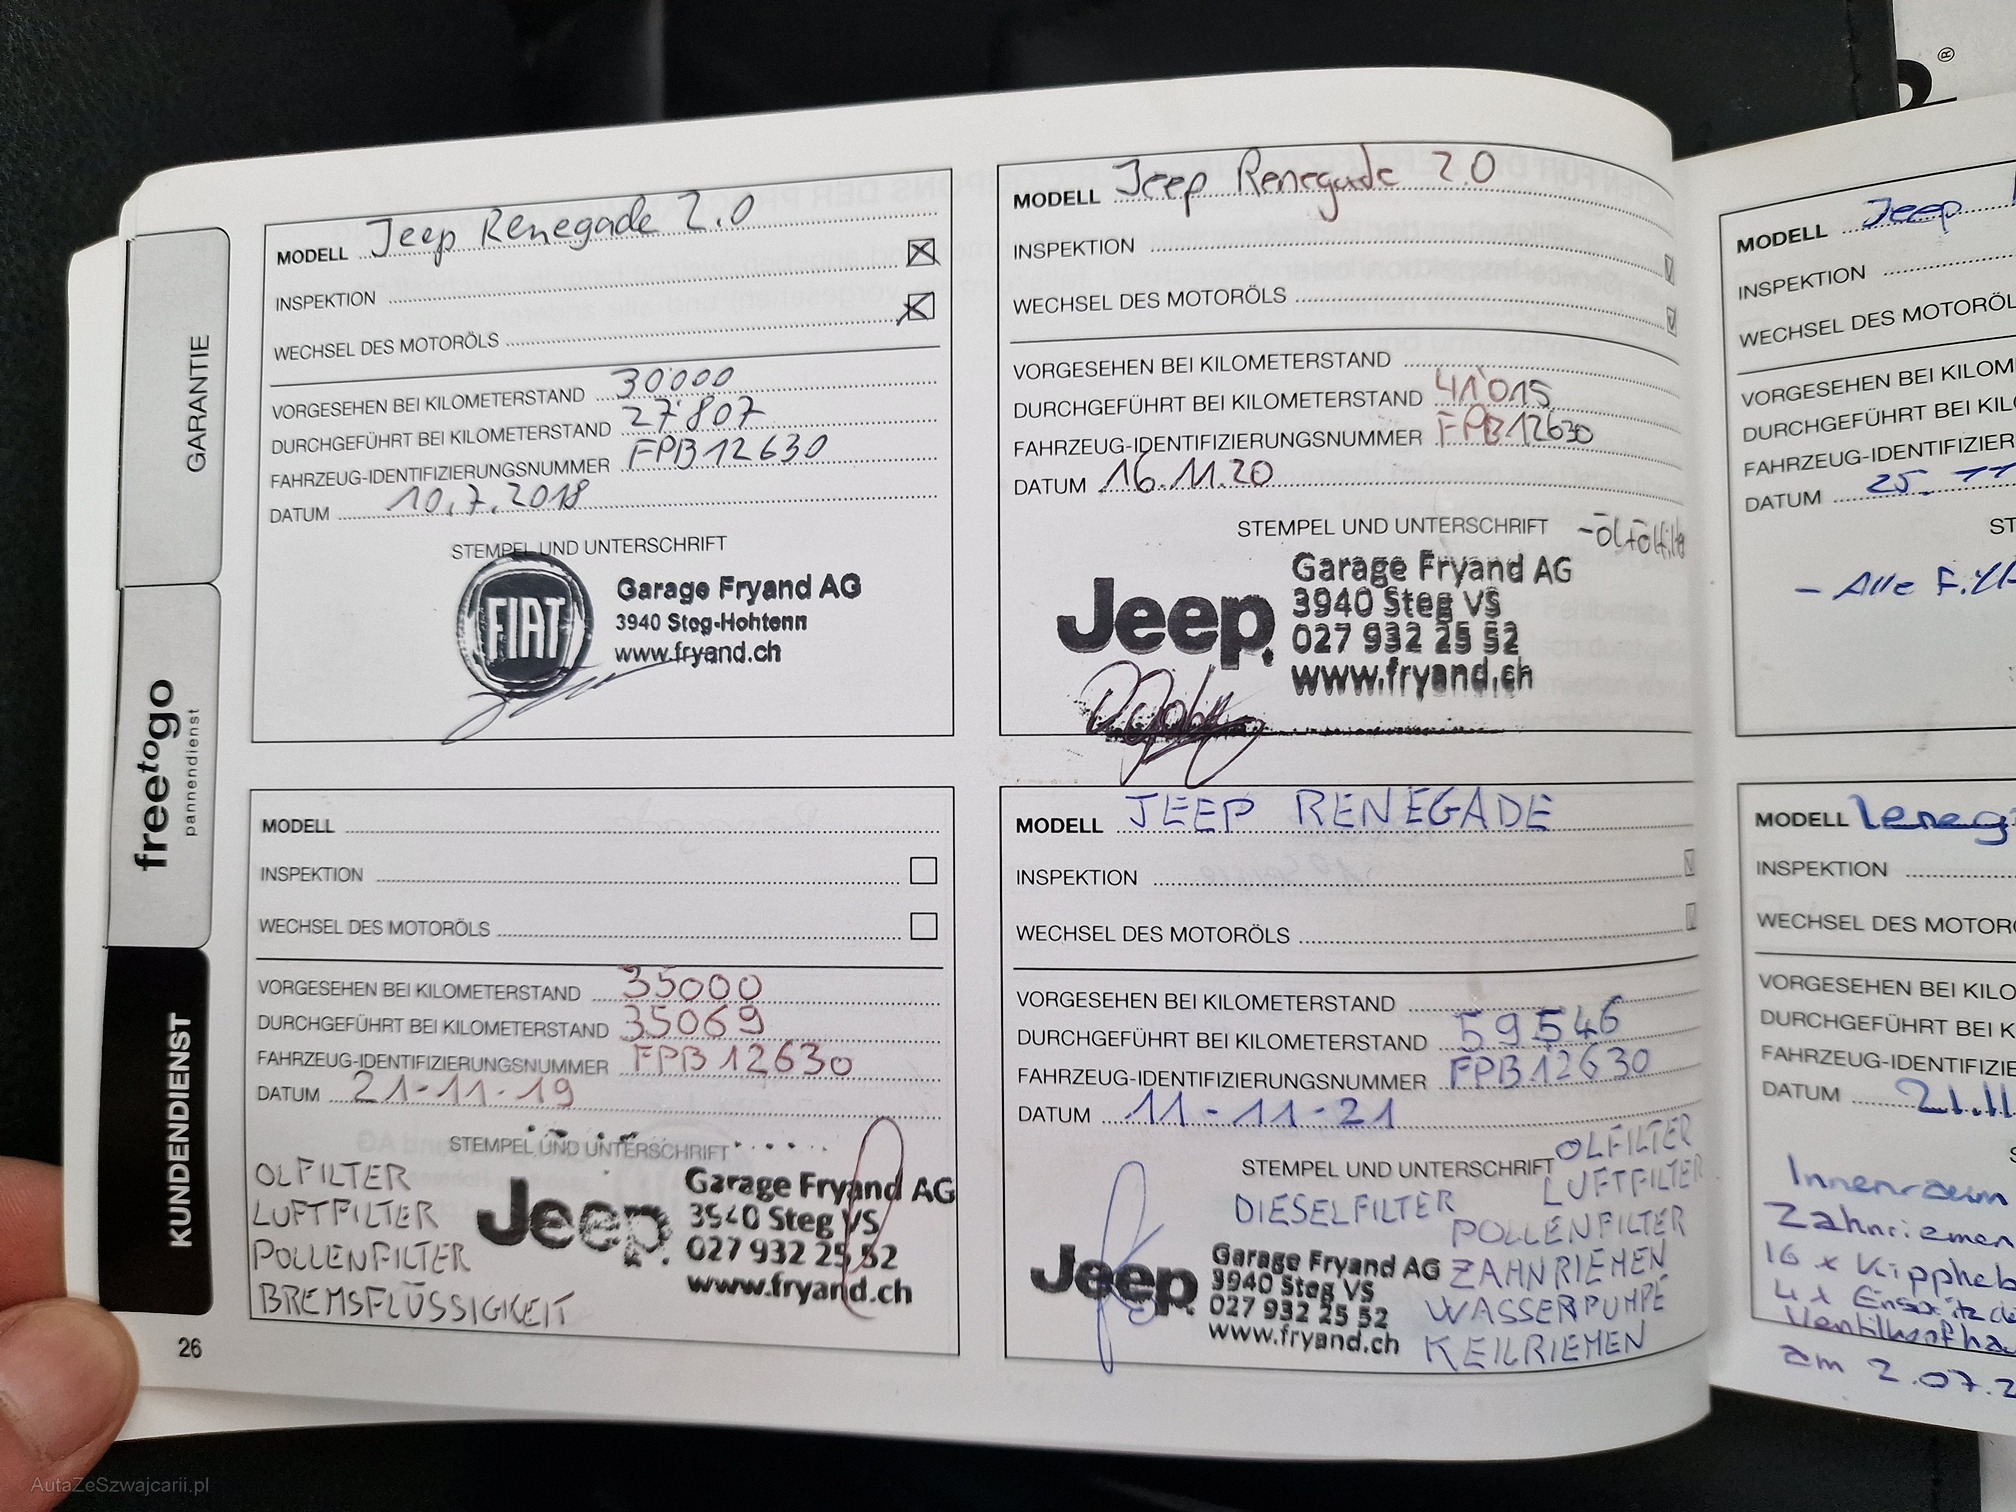 ®
GARANTIE
freetogo
pannendienst
KUNDENDIENST
26
MODELL Jeep Renegade 2.0
INSPEKTION
WECHSEL DES MOTORÖLS
VORGESEHEN BEI KILOMETERSTAND 30'000
DURCHGEFÜHRT BEI KILOMETERSTAND 27'807
FAHRZEUG-IDENTIFIZIERUNGSNUMMER FPB12630
DATUM 10.7.2018
STEMPEL UND UNTERSCHRIFT
FIAT
Garage Fryand AG
3940 Steg-Hohtenn
www.fryand.ch
MODELL Jeep Renegade 2.0
INSPEKTION
WECHSEL DES MOTORÖLS
VORGESEHEN BEI KILOMETERSTAND
DURCHGEFÜHRT BEI KILOMETERSTAND 41'015
FAHRZEUG-IDENTIFIZIERUNGSNUMMER FPB12630
DATUM 16.11.20
STEMPEL UND UNTERSCHRIFT
Jeep
Garage Fryand AG
3940 Steg VS
027 932 25 52
www.fryand.ch
MODELL
INSPEKTION
WECHSEL DES MOTORÖLS
VORGESEHEN BEI KILOMETERSTAND 35000
DURCHGEFÜHRT BEI KILOMETERSTAND 35069
FAHRZEUG-IDENTIFIZIERUNGSNUMMER FPB12630
DATUM 21-11-19
STEMPEL UND UNTERSCHRIFT
OLFILTER
LUFTFILTER
POLLENFILTER
BREMSFLÜSSIGKEIT
Jeep
Garage Fryand AG
3940 Steg VS
027 932 25 52
www.fryand.ch
MODELL JEEP RENEGADE
INSPEKTION
WECHSEL DES MOTORÖLS
VORGESEHEN BEI KILOMETERSTAND
DURCHGEFÜHRT BEI KILOMETERSTAND 59546
FAHRZEUG-IDENTIFIZIERUNGSNUMMER FPB12630
DATUM 11-11-21
STEMPEL UND UNTERSCHRIFT
OLFILTER
LUFTFILTER
DIESELFILTER
POLLENFILTER
ZAHNRIEMEN
WASSERPUMPE
KEILRIEMEN
Jeep
Garage Fryand AG
3940 Steg VS
027 932 25 52
www.fryand.ch
MODELL Jeep
INSPEKTION
WECHSEL DES MOTORÖL
VORGESEHEN BEI KILOM
DURCHGEFÜHRT BEI KILO
FAHRZEUG-IDENTIFIZIER
DATUM 25. 11
ST
- Alle
MODELL
INSPEKTION
WECHSEL DES MOTOR
VORGESEHEN BEI KILO
DURCHGEFÜHRT BEI K
FAHRZEUG-IDENTIFIZIE
DATUM 21.11
S
Innenraum
Zahnriemen
16 x Kippheb
4 x
am 2.07.2
AutaZeSzwajcarii.pl